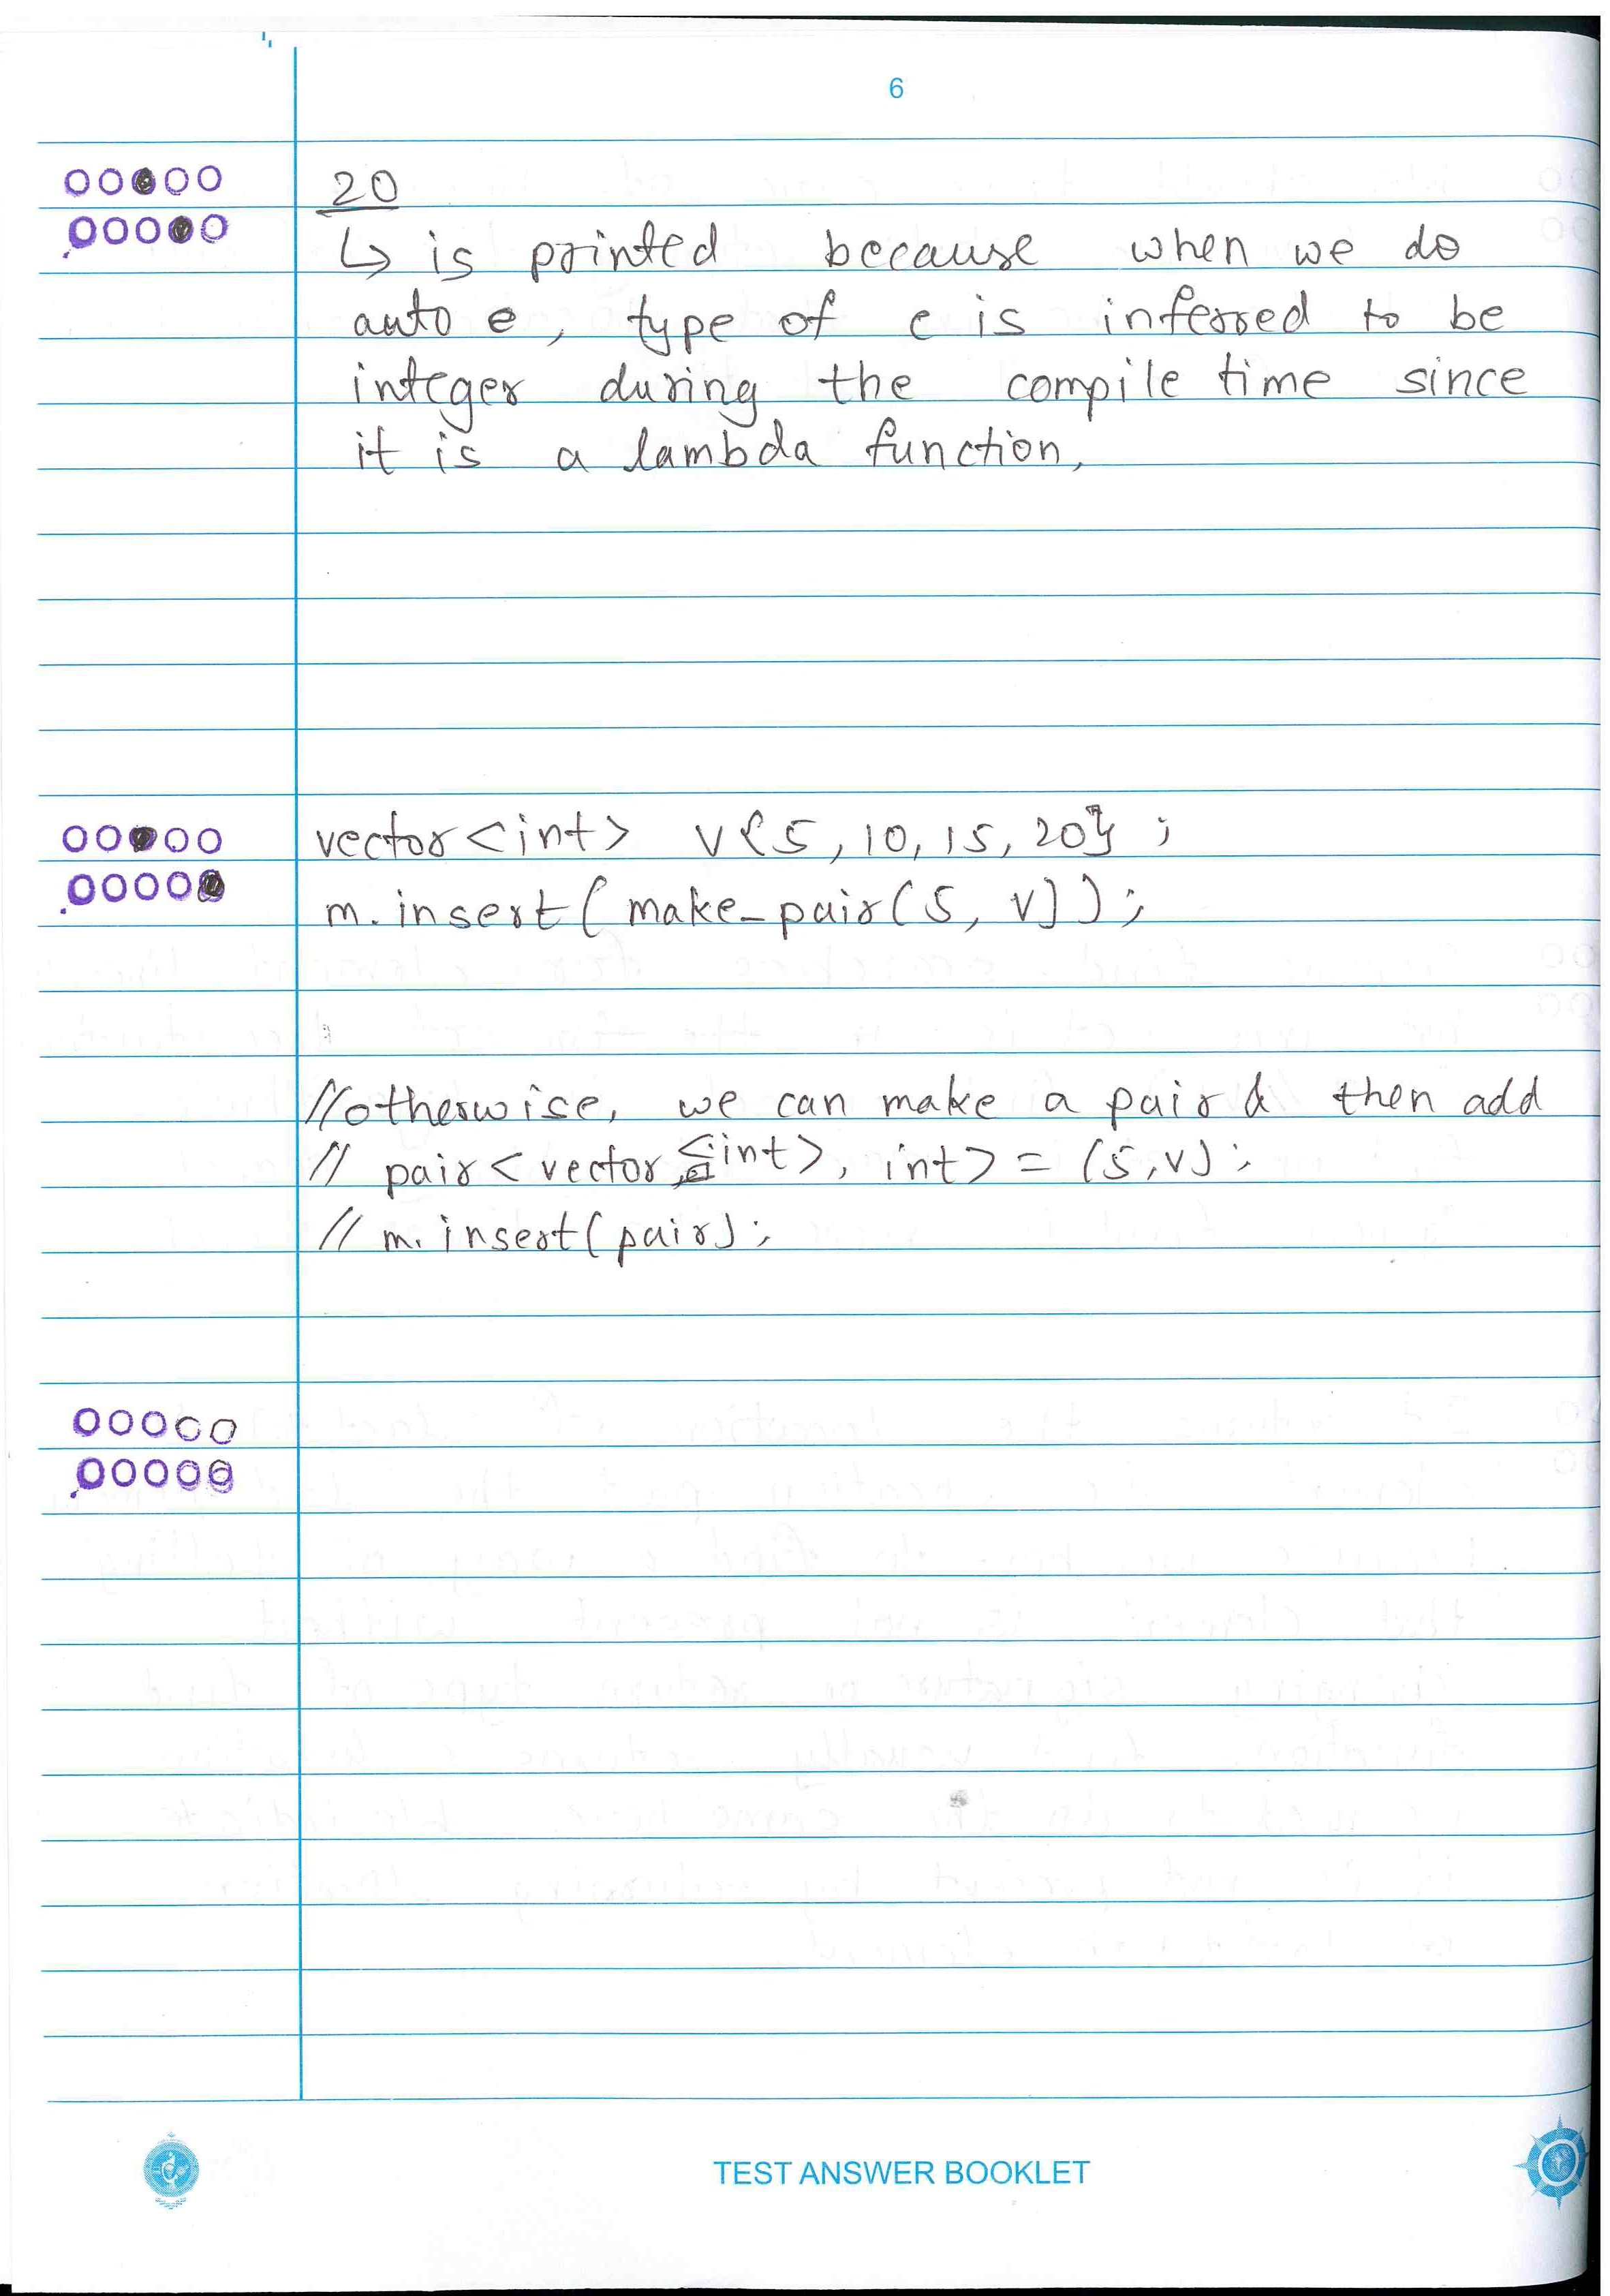 6
20
↳ is printed because when we do
auto e, type of e is inferred to be
integer during the compile time since
it is a lambda function,
vector<int> v{5, 10, 15, 20};
m.insert(make_pair(5, v));
//otherwise, we can make a pair & then add
// pair<vector<int>, int> = (5,v);
// m.insert(pair);
TEST ANSWER BOOKLET